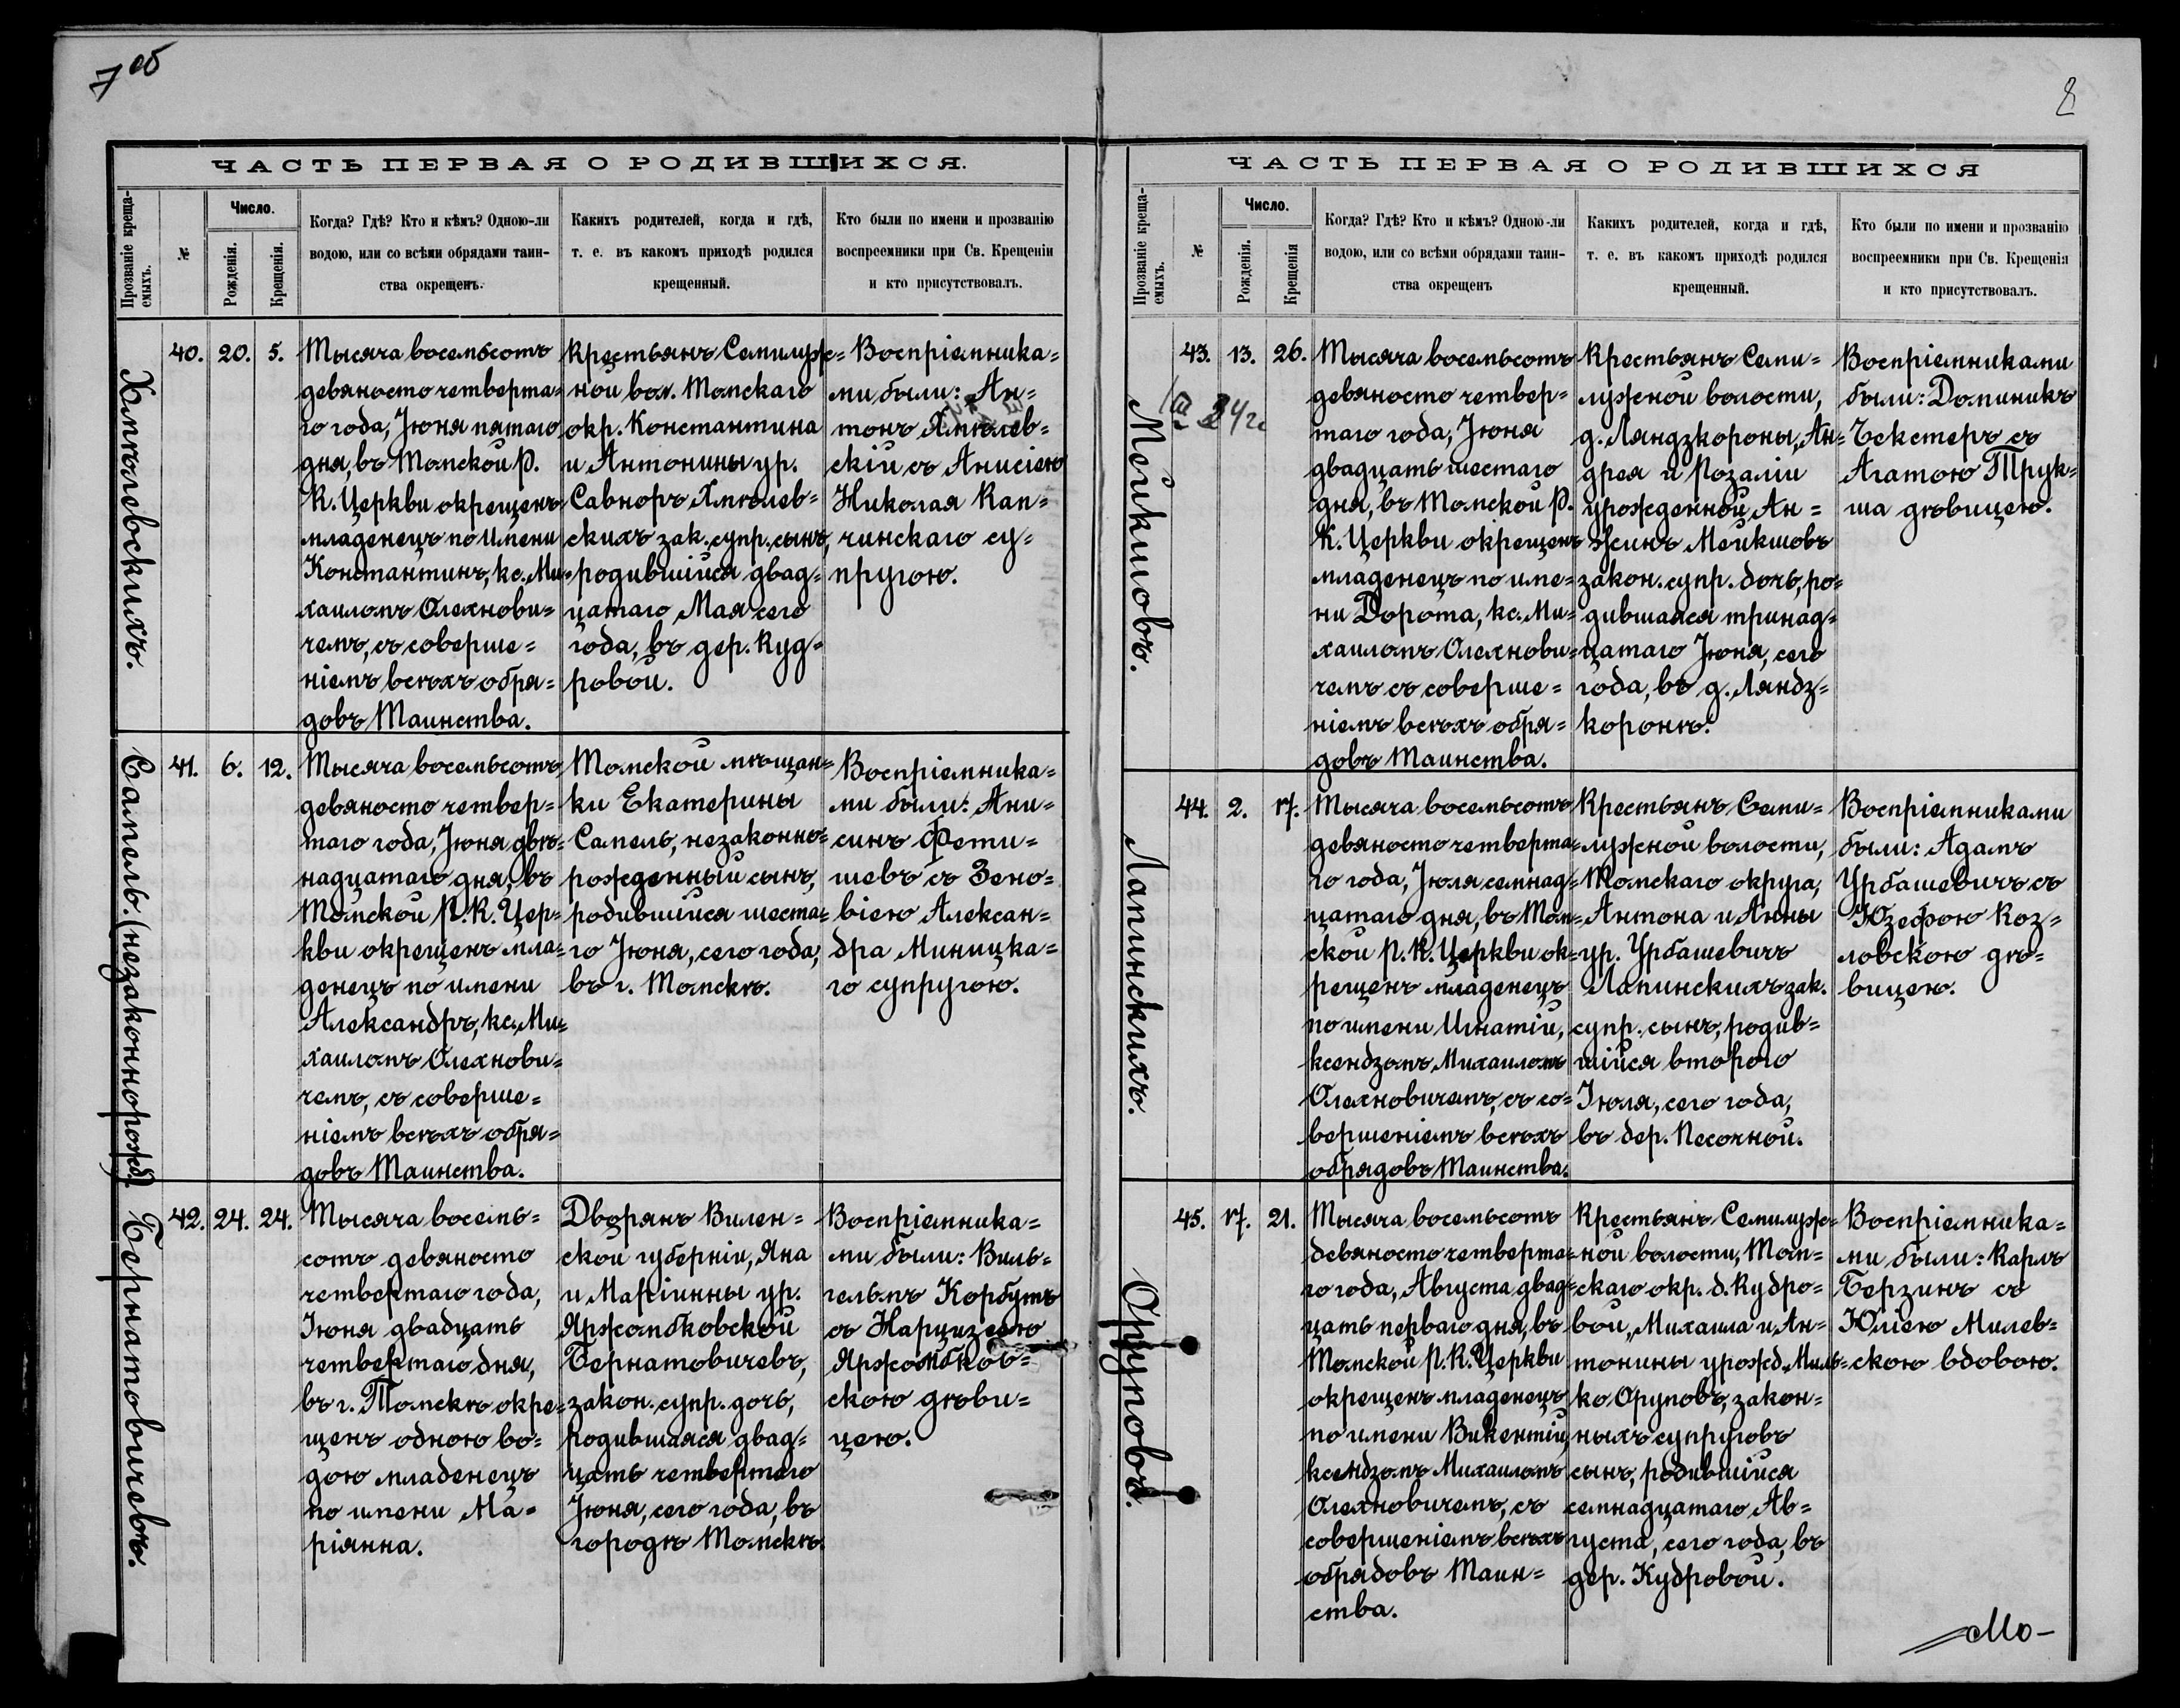 7 об
ЧАСТЬ ПЕРВАЯ О РОДИВШИХСЯ.
Прозваніе креща-
емыхъ.
№
Число.
Рожденія.
Крещенія.
Когда? Гдѣ? Кто и кѣмъ? Одною-ли
водою, или со всѣми обрядами таин-
ства окрещенъ.
Какихъ родителей, когда и гдѣ,
т. е. въ какомъ приходѣ родился
крещенный.
Кто были по имени и прозванію
воспреемники при Св. Крещеніи
и кто присутствовалъ.
Хмѣлевскихъ.
40.
20.
5.
Тысяча восемьсотъ
девяносто четверта=
го года, Іюня пятаго
дня, въ Томской Р.
К. Церкви окрещенъ
младенецъ по имени
Константинъ, кс. Ми=
хаиломъ Олехнови=
чемъ, съ соверше=
ніемъ всѣхъ обря=
довъ Таинства.
Крестьянъ Семилуж=
ной вол. Томскаго
окр. Константина
и Антонины ур.
Савноръ Хмѣлев=
скихъ зак. супр. сынъ,
родившійся двад=
цатаго Мая сего
года, въ дер. Куд=
ровой.
Воспріемника=
ми были: Ан=
тонъ Хмѣлев=
скій съ Анисіею
Николая Кап=
чинскаго су=
пругою.
Сапель. (незаконнорожд.)
41.
6.
12.
Тысяча восемьсотъ
девяносто четвер=
таго года, Іюня двѣ=
надцатаго дня, въ
Томской Р. К. Цер=
кви окрещенъ мла=
денецъ по имени
Александръ, кс. Ми=
хаиломъ Олехнови=
чемъ, съ соверше=
ніемъ всѣхъ обря=
довъ Таинства.
Томской мѣщан=
ки Екатерины
Сапель, незаконно=
рожденный сынъ,
родившійся шеста=
го Іюня, сего года,
въ г. Томскѣ.
Воспріемника=
ми были: Ани=
симъ Фети=
шевъ съ Зено=
віею Алексан=
дра Миницка=
го супругою.
Бернатовичевъ.
42.
24.
24.
Тысяча восемь=
сотъ девяносто
четвертаго года,
Іюня двадцать
четвертаго дня,
въ г. Томскѣ окре=
щенъ одною во=
дою младенецъ
по имени Ма=
ріянна.
Дворянъ Вилен=
ской губерніи, Яна
и Маріинны ур.
Яржомбковской
Бернатовичевъ,
закон. супр. дочь,
родившаяся двад=
цать четвертаго
Іюня, сего года, въ
городѣ Томскѣ.
Воспріемника=
ми были: Виль=
гельмъ Корбутъ
съ Нарцизею
Яржомбков=
скою дѣви=
цею.
8
ЧАСТЬ ПЕРВАЯ О РОДИВШИХСЯ
Прозваніе креща-
емыхъ.
№
Число.
Рожденія.
Крещенія
Когда? Гдѣ? Кто и кѣмъ? Одною-ли
водою, или со всѣми обрядами таин-
ства окрещенъ
Какихъ родителей, когда и гдѣ,
т. е. въ какомъ приходѣ родился
крещенный.
Кто были по имени и прозванію
воспреемники при Св. Крещенія
и кто присутствовалъ.
Мейкшовъ.
43.
13.
26.
Тысяча восемьсотъ
девяносто четвер=
таго года, Іюня
двадцать шестаго
дня, въ Томской Р.
К. Церкви окрещенъ
младенецъ по име=
ни Дорота, кс. Ми=
хаиломъ Олехнови=
чемъ съ соверше=
ніемъ всѣхъ обря=
довъ Таинства.
Крестьянъ Семи=
лужной волости,
д. Ляндзкороны, Ан=
дрея и Розаліи
урожденной Ан=
жинъ Мейкшовъ
закон. супр. дочь, ро=
дившаяся тринад=
цатаго Іюня, сего
года, въ д. Ляндз=
коронѣ.
Воспріемниками
были: Доминикъ
Бекстеръ съ
Агатою Трук=
ша дѣвицею.
Лапинскихъ.
44.
2.
17.
Тысяча восемьсотъ
девяносто четверта=
го года, Іюля семнад=
цатаго дня, въ Том=
ской Р. К. Церкви ок=
рещенъ младенецъ
по имени Игнатій,
ксендзомъ Михаиломъ
Олехновичемъ, съ со=
вершеніемъ всѣхъ
обрядовъ Таинства.
Крестьянъ Семи=
лужной волости,
Томскаго округа,
Антона и Анны
ур. Урбашевичъ
Лапинскихъ зак.
супр. сынъ, родив=
шійся второго
Іюля, сего года,
въ дер. Песочной.
Воспріемниками
были: Адамъ
Урбашевичъ съ
Юзефою Коз=
ловскою дѣ=
вицею.
Оруповъ.
45.
17.
21.
Тысяча восемьсотъ
девяносто четверта=
го года, Августа двад=
цать перваго дня, въ
Томской Р. К. Церкви
окрещенъ младенецъ
по имени Викентій,
ксендзомъ Михаиломъ
Олехновичемъ, съ
совершеніемъ всѣхъ
обрядовъ Таин=
ства.
Крестьянъ Семилуж=
ной волости, Том=
скаго окр. д. Кудро=
вой, Михаила и Ан=
тонины урожд. Миль=
ко Оруповъ, закон=
ныхъ супруговъ
сынъ, родившійся
семнадцатаго Ав=
густа, сего года, въ
дер. Кудровой.
Воспріемника=
ми были: Карлъ
Берзинъ съ
Юліею Милев=
скою вдовою.